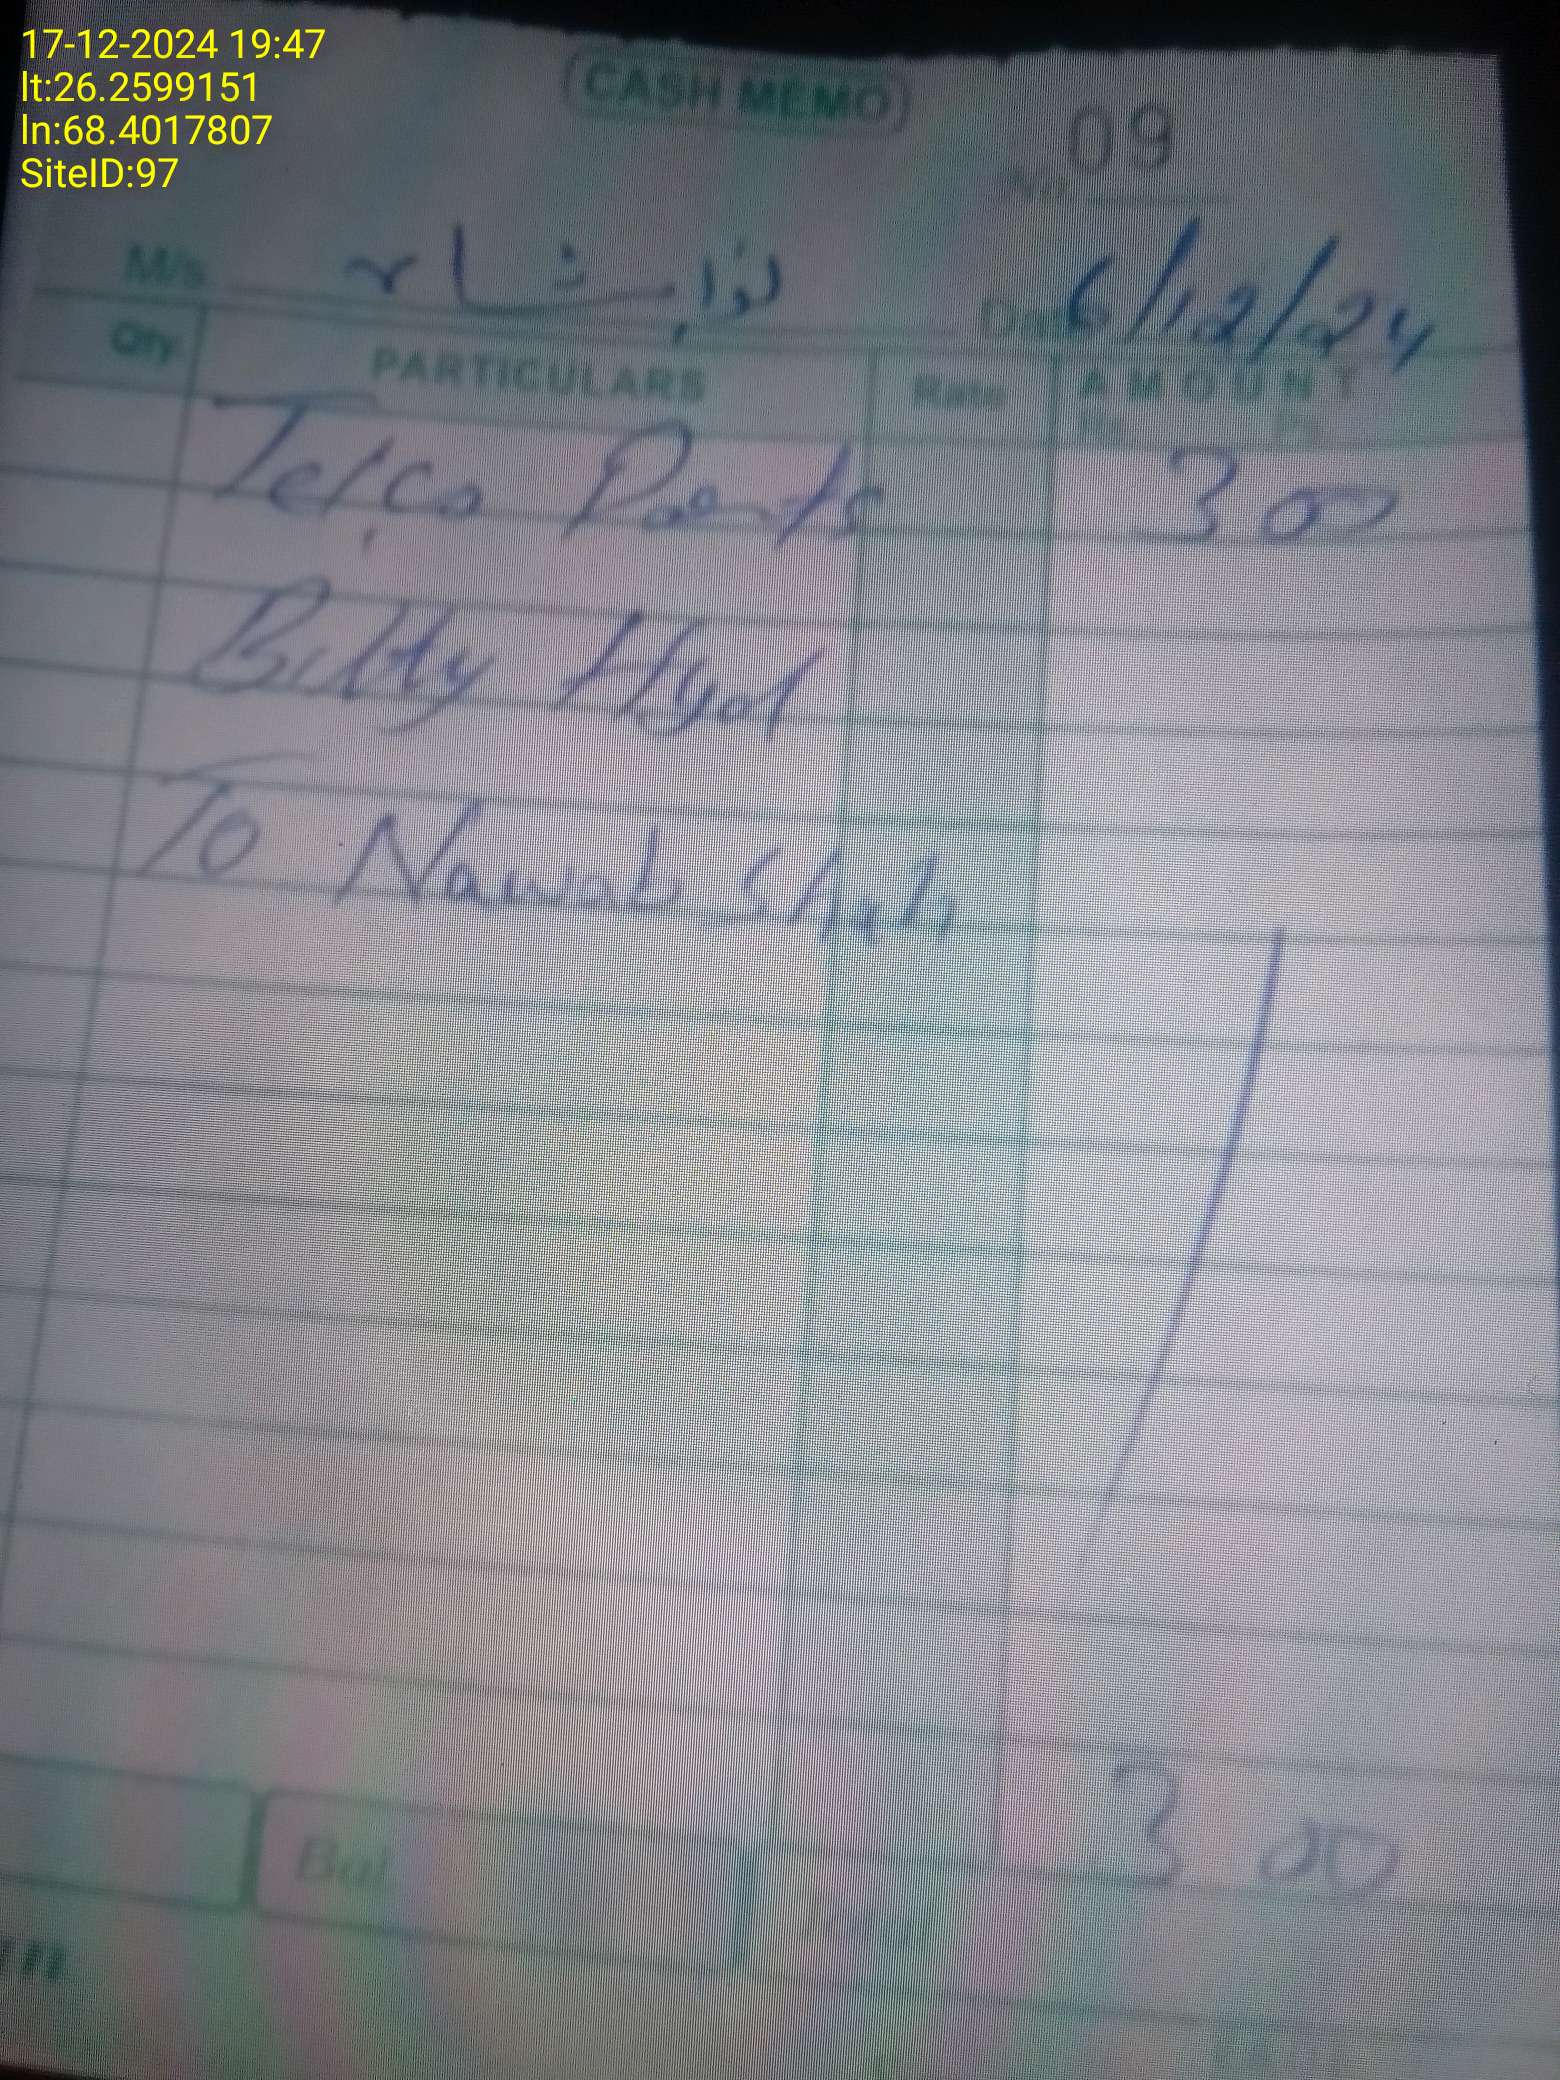 17-12-2024 19:47
lt:26.2599151
ln:68.4017807
SiteID:97
CASH MEMO
No. 09
M/s نوابشاہ Date 6/12/24
Qty. PARTICULARS Rate AMOUNT
Telco Parts 300
Bilty Hyd
To Nawab Shah
300
Bal